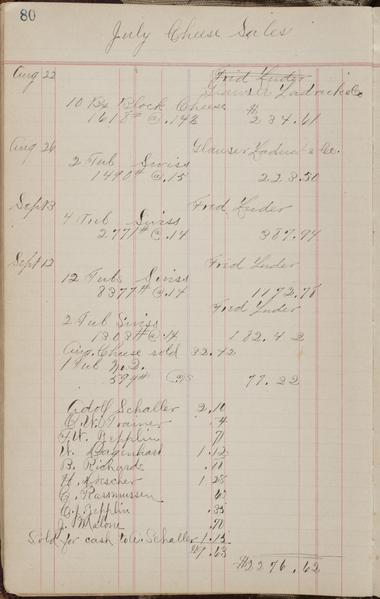 80
July Cheese Sales
Aug 22 Fred Luder
Glauser
10 Bx Block Cheese $
1618# @ .14½ 234.61
Aug 26 Glauser
2 Tub Swiss
1490# @ .15 223.50
Sept 3 Fred Luder
4 Tub Swiss
2771# @ .14 387.94
Sept 12 Fred Luder
12 Tubs Swiss
8377# @ .14 1172.78
Fred Luder
2 Tub Swiss
1303# @ .14 182.42
Aug. Cheese sold 32.42
1 Tub No. 2.
594# @ 77.22
Adolf Schaller 2.10
C. W. Tramer .4
F. W. Zepplin .71
W. 1.12
B. Richards
H. 1.28
C. Rasmussen
C. J. Zepplin .35
J. Malone .70
Sold for cash tole. Schaller 1.15
1.63
$2276.62